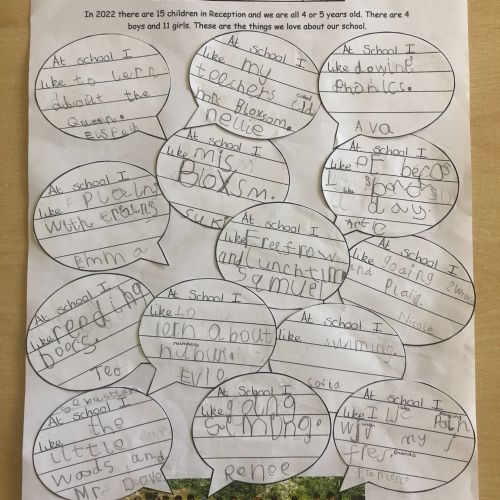 In 2022 there are 15 children in Reception and we are all 4 or 5 years old. There are 4
boys and 11 girls. These are the things we love about our school.
At school I
like to lern
about the
Queen.
Elspeth
At school I
like my
teachers
Bloxsom.
nellie
At school I
like dowing
Phonics.
Ava
At school I
like mis
Bloxsm.
At school I
like
spords
day.
At school I
like Plain
with trains
Emma
At school I
like Freefrow
and lunchtim
Samuel
At school I
like goaing
and
Plaing.
Nicole
At school I
like reading
boocs.
Teo
At school I
like to
lern about
numbers
Evie
At school I
like
swiming.
Sofia
Sebastian
At school I
like the
little
woods and
Mrs Dave
At school I
like going
swiming.
Renee
At school I
like I like
my
friends
Francesca